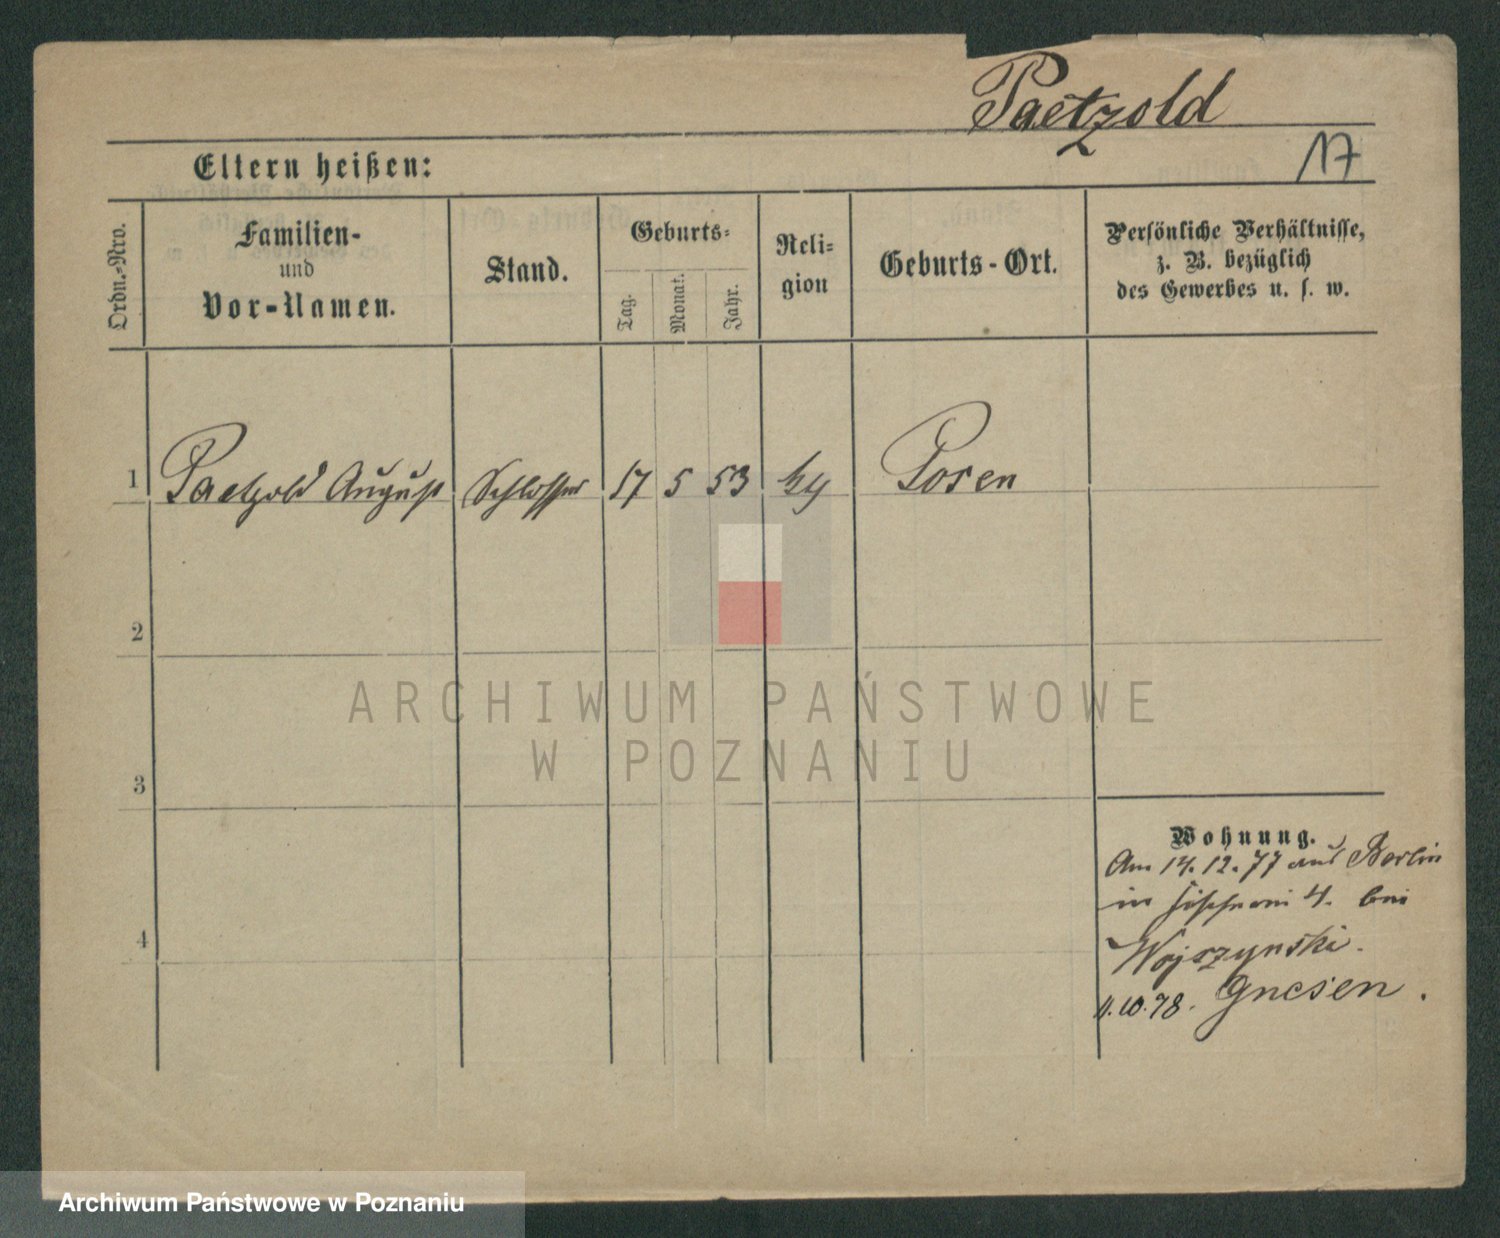 Paetzold
17
Eltern heißen:
Ordn.-Nro.
Familien-
und
Vor-Namen.
Stand.
Geburts-
Tag.
Monat.
Jahr.
Reli-
gion
Geburts-Ort.
Persönliche Verhältnisse,
z. B. bezüglich
des Gewerbes u. s. w.
1 Paetzold August Schlosser 17 5 53 Posen
2
3
4
Wohnung.
Am 14.12.77 aus Berlin
in 4. bei
Wojszynski.
11.10.78. Gnesen.
ARCHIWUM PAŃSTWOWE
W POZNANIU
Archiwum Państwowe w Poznaniu